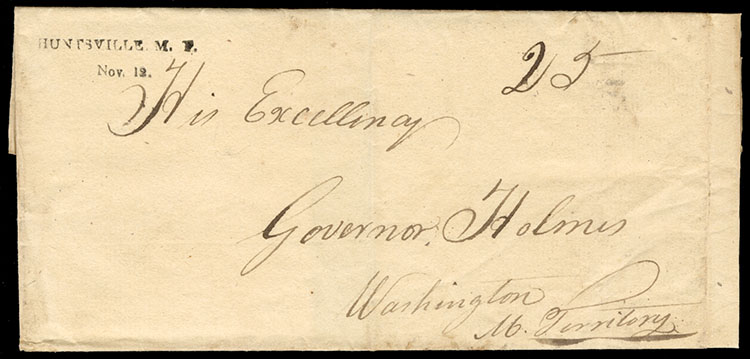 HUNTSVILLE. M. T.
Nov. 12.
25
His Excellency
Governor, Holmes
Washington
M. Territory